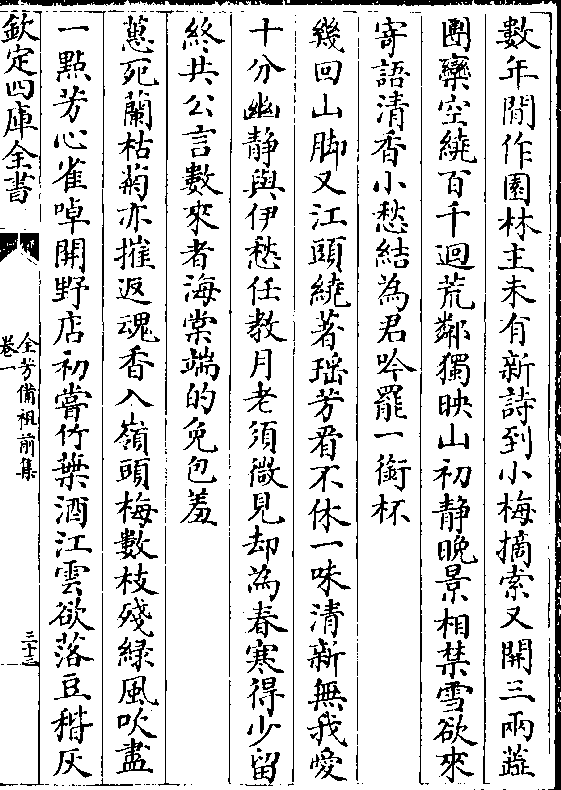 數年閒作園林主未有新詩到小梅摘索又開三兩蘂
團欒空繞百千迴荒鄰獨映山初静晚景相禁雪欲來
寄語清香小愁結為君吟罷一銜杯
幾回山脚又江頭繞著瑶芳看不休一味清新無我愛
十分幽静與伊愁任教月老須微見却為春寒得少留
終共公言數來者海棠端的免包羞
蕙死蘭枯菊亦摧返魂香入嶺頭梅數枝殘緑風吹盡
一點芳心雀啅開野店初嘗竹葉酒江雲欲落豆稭灰
欽定四庫全書
全芳備祖前集
卷一
三十三